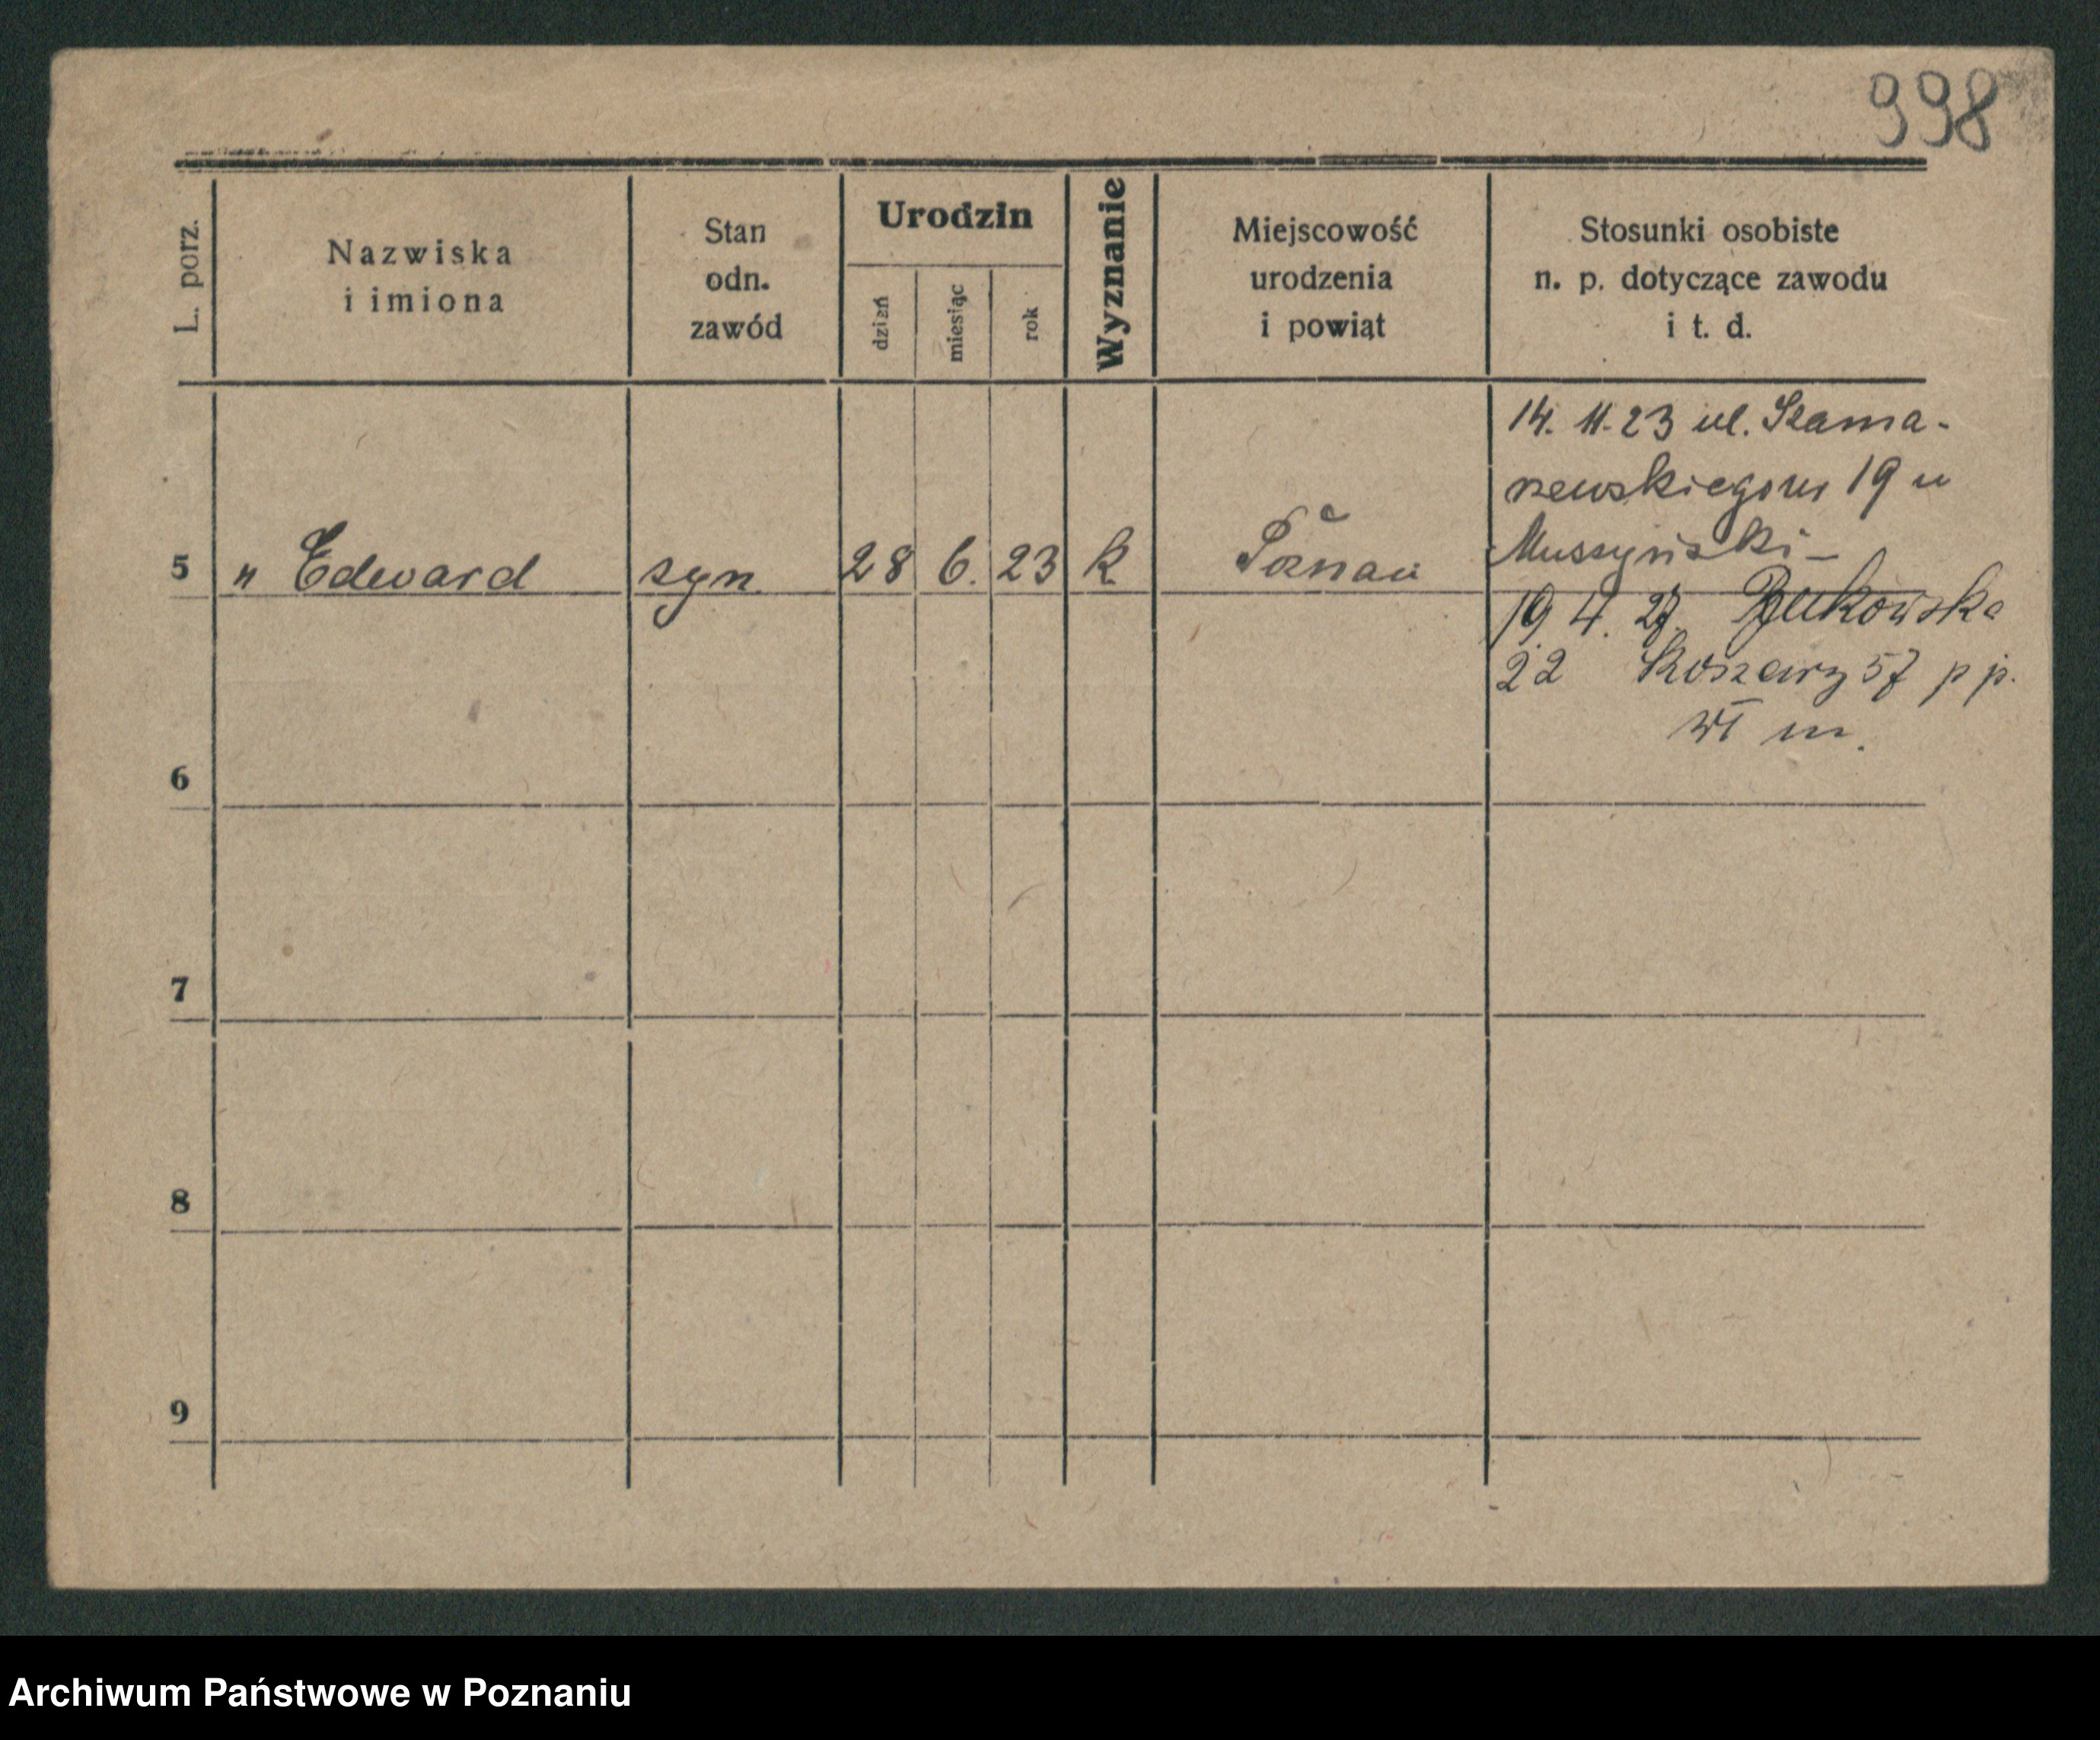 998
L. porz.
Nazwiska
i imiona
Stan
odn.
zawód
Urodzin
dzień
miesiąc
rok
Wyznanie
Miejscowość
urodzenia
i powiąt
Stosunki osobiste
n. p. dotyczące zawodu
i t. d.
5 " Edward syn 28 6. 23 k. Poznań
14. 11. 23 ul. Szama-
rzewskiego 19 u
Muszyński –
19 4. 27. Bukowska
22 Koszary 57 p p.
w m.
6
7
8
9
Archiwum Państwowe w Poznaniu